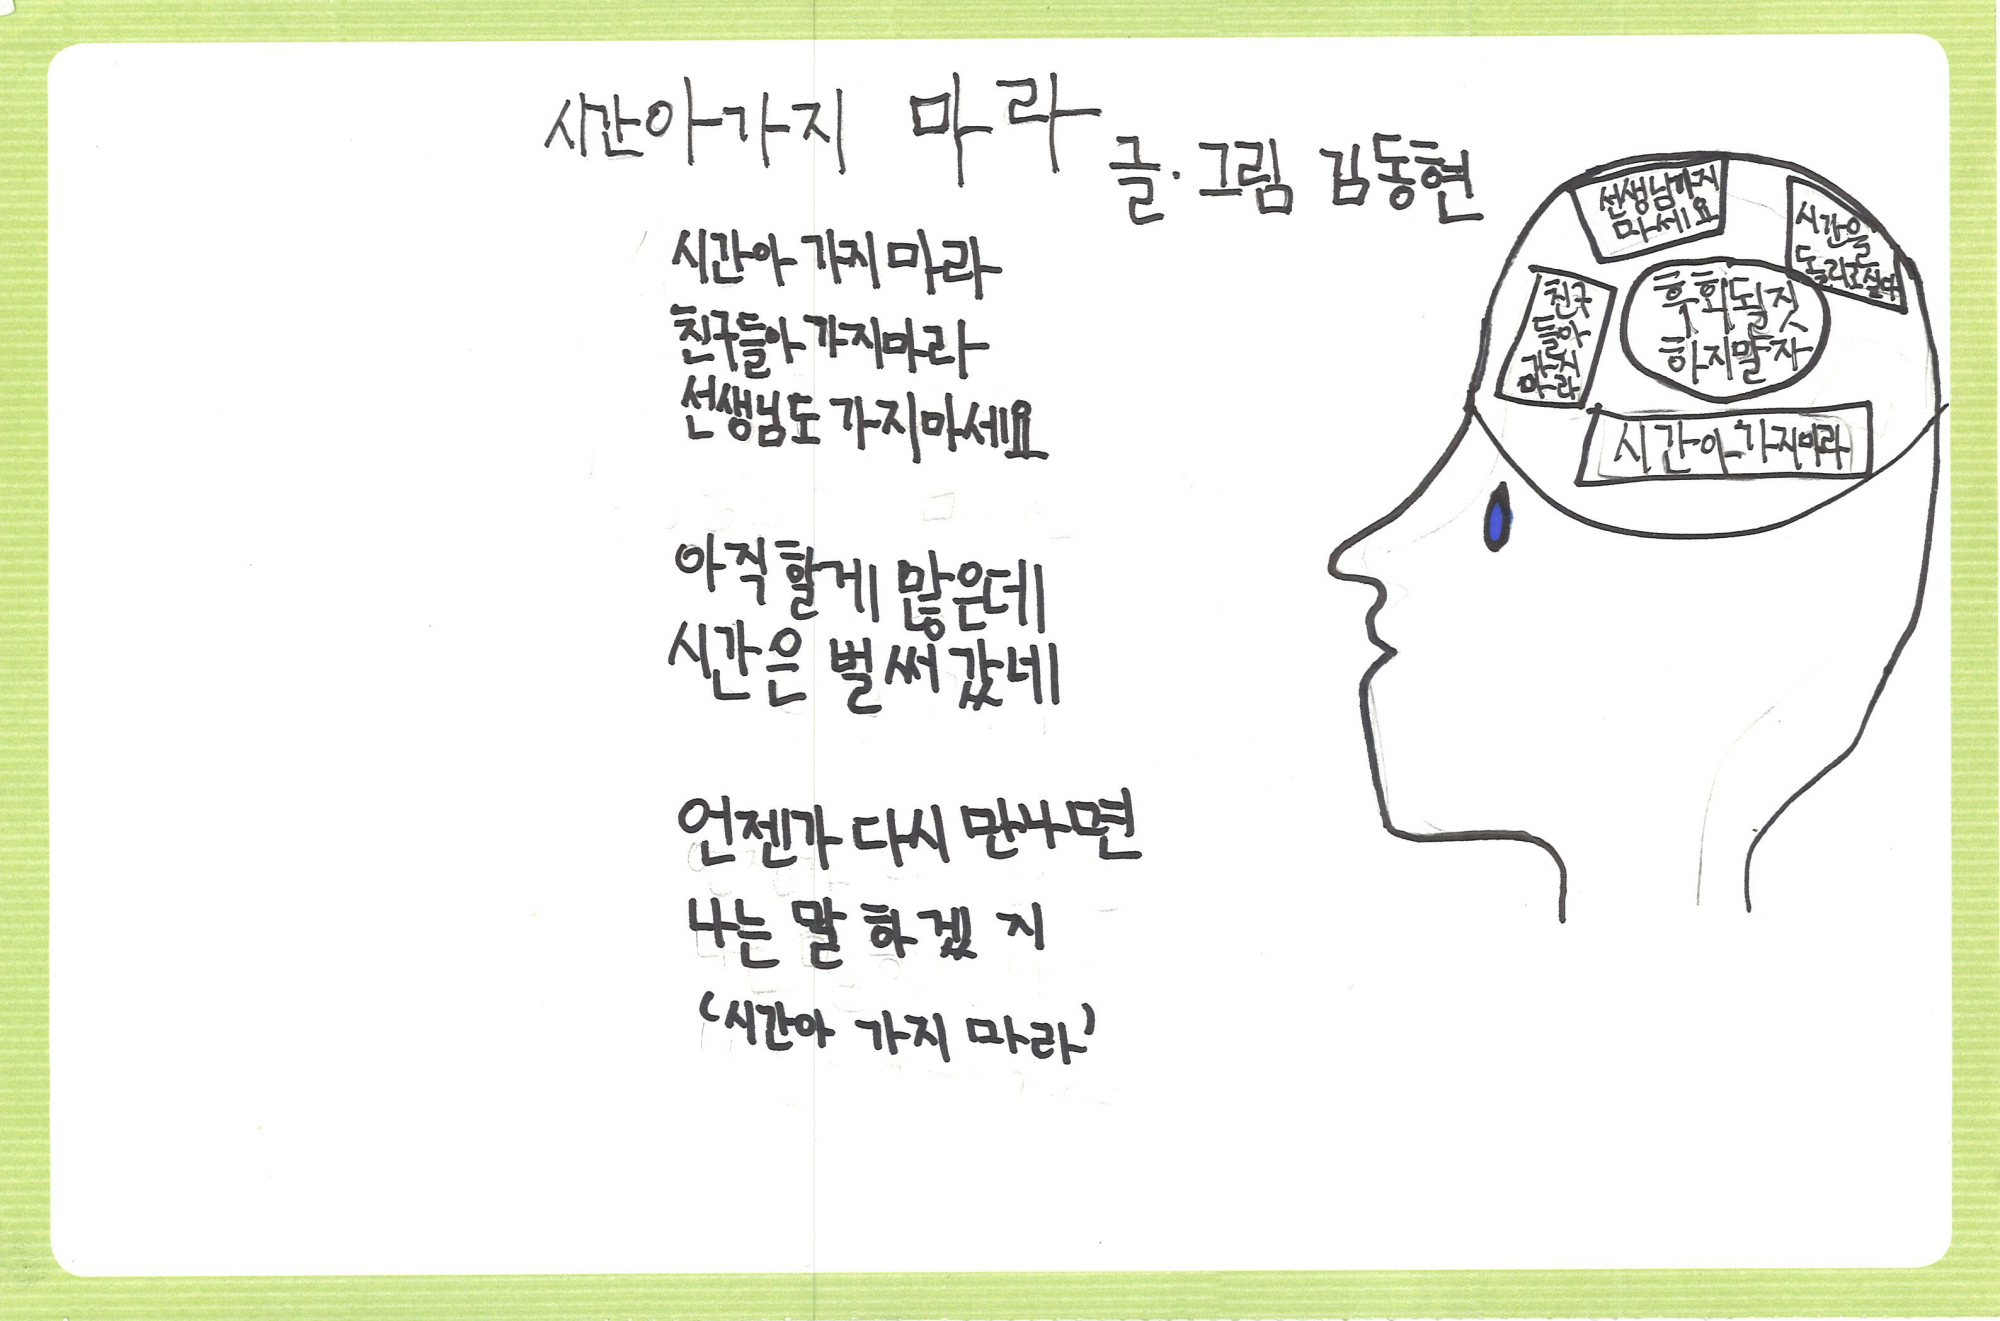 시간아가지 마라
글·그림 김동현
시간아 가지마라
친구들아 가지마라
선생님도 가지마세요
아직 할게 많은데
시간은 벌써 갔네
언젠가 다시 만나면
나는 말 하겠 지
'시간아 가지 마라'
선생님가지
마세요
시간을
돌리고싶다
친구
들아
가지
마라
후회될짓
하지말자
시간아가지마라